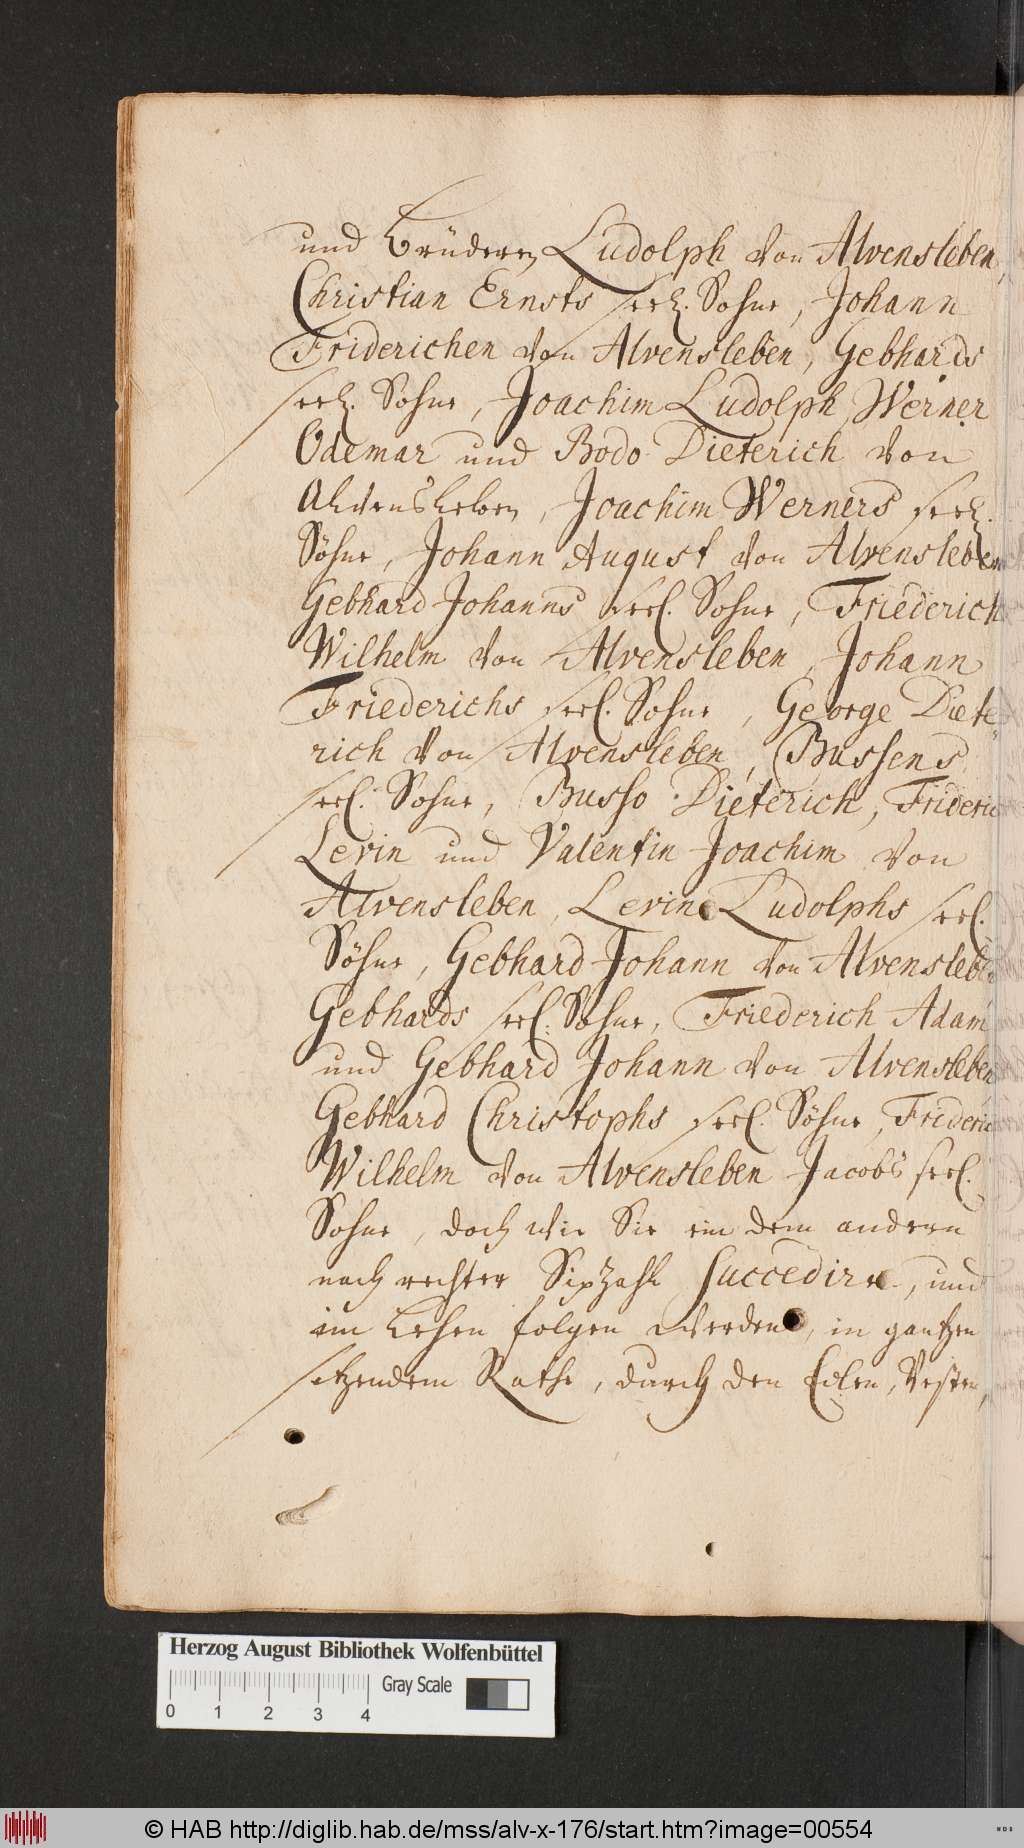 und Brüdern Ludolph von Alvensleben,
Christian Ernsts seel. Sohne, Johann
Friderichen von Alvensleben, Gebhards
seel. Sohne, Joachim Ludolph, Werner
Odemar und Bodo Dieterich von
Alvensleben, Joachim Werners seel.
Söhne, Johann August von Alvensleben
Gebhard Johanns seel. Sohne, Friederich
Wilhelm von Alvensleben, Johann
Friederichs seel. Sohne, George Diete-
rich von Alvensleben, Bussens
seel. Sohne, Busso Dieterich, Frideric
Levin und Valentin Joachim von
Alvensleben, Levin Ludolphs seel.
Söhne, Gebhard Johann von Alvensleben
Gebhards seel. Sohne, Friederich Adam
und Gebhard Johann von Alvensleben
Gebhard Christophs seel. Söhne, Frideric
Wilhelm von Alvensleben Jacobs seel.
Sohne, doch wie Sie ein dem andern
nach rechter Sipzahl succedire, und
im Lehen folgen werden, in gantzen
sitzendem Rathe, durch den Edlen, Vesten,
Herzog August Bibliothek Wolfenbüttel
Gray Scale
0 1 2 3 4
© HAB http://diglib.hab.de/mss/alv-x-176/start.htm?image=00554